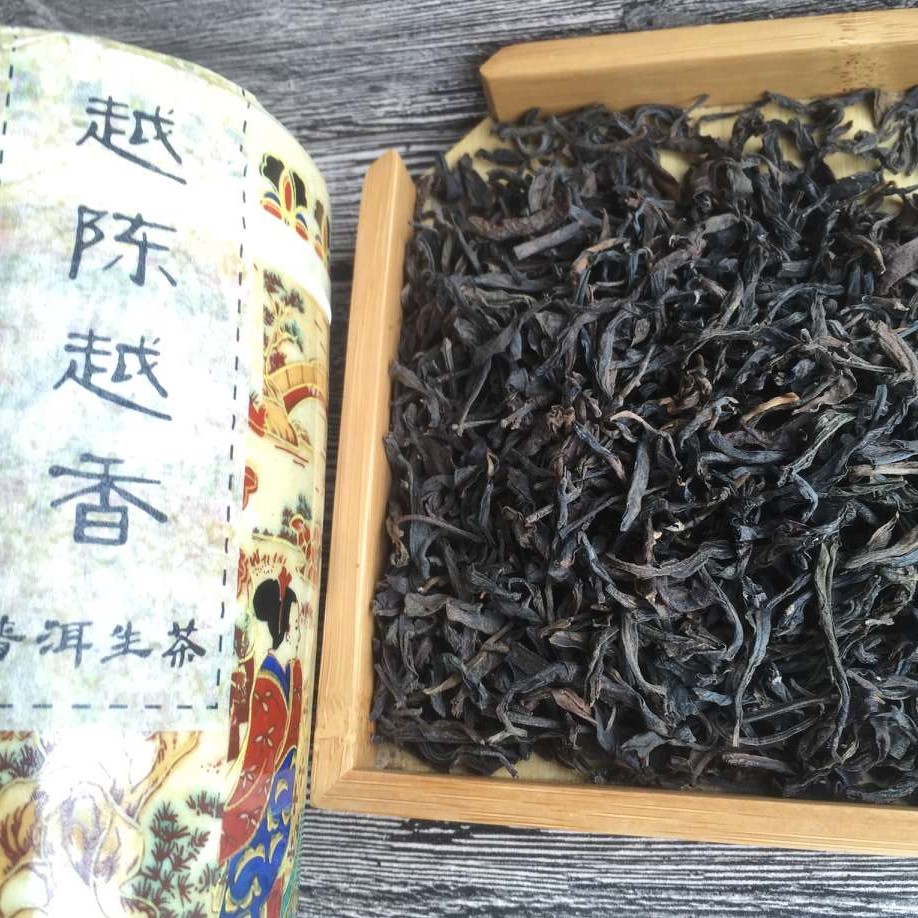 越陈越香
普洱生茶